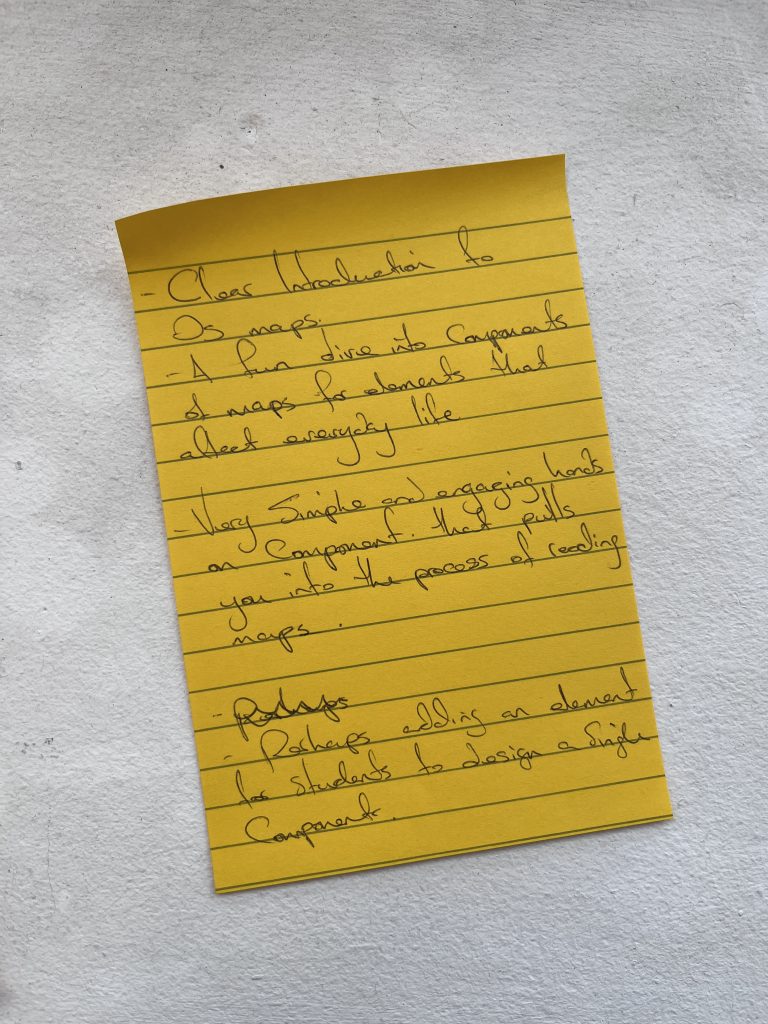 - Clear Introduction to
Os maps.
- A fun dive into Components
of maps for elements that
affect everyday life
- Very Simple and engaging hands
on Component. that pulls
you into the process of reading
maps.
- Perhaps
- Perhaps adding an element
for students to design a Single
Component.